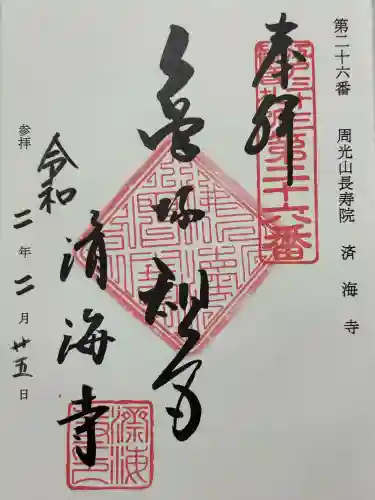 第二十六番 周光山長寿院 済海寺
奉拝
第二十六番
亀塚観音
済海寺
令和
参拝 二年二月廿五日